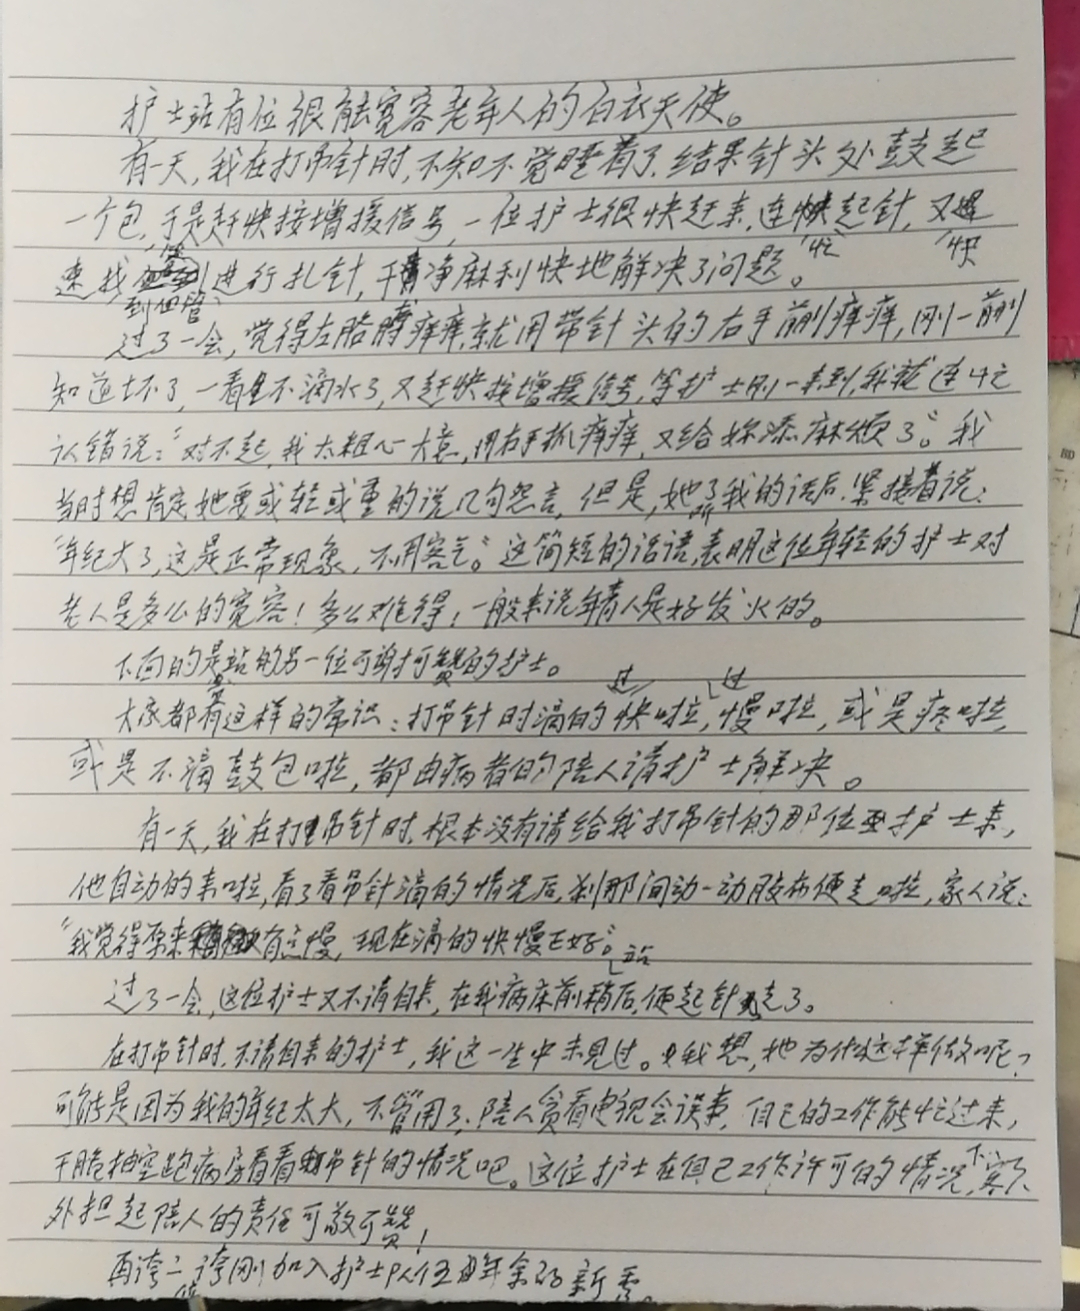 护士站有位很能宽容老年人的白衣天使。
有一天,我在打吊针时,不知不觉睡着了,结果针头处鼓起
一个包,于是赶快按增援信号,一位护士很快赶来,连忙起针,又快
速找到血管进行扎针,干净麻利快地解决了问题。
过了一会,觉得左胳膊痒痒,就用带针头的右手前削痒痒,刚一削
知道坏了,一看是不滴水了,又赶快按增援信号,等护士刚一来到,我就连忙
认错说:“对不起,我太粗心大意,用右手抓痒痒,又给你添麻烦了。”我
当时想肯定她要或轻或重的说几句怨言,但是,她听了我的话后,紧接着说:
“年纪大了,这是正常现象,不用客气。”这简短的话语,表明这位年轻的护士对
老人是多么的宽容!多么难得!一般来说年青人是好发火的。
下面的是站的另一位可谢可赞的护士。
大家都有这样的常识:打吊针时滴的过快啦,过慢啦,或是疼啦,
或是不滴鼓包啦,都由病者的陪人请护士解决。
有一天,我在打吊针时,根本没有请给我打吊针的那位护士来,
他自动的来啦,看了看吊针滴的情况后,刹那间动一动胶布便走啦,家人说:
“我觉得原来有点慢,现在滴的快慢正好。”
过了一会,这位护士又不请自来,站在我病床前稍后,便起针走了。
在打吊针时,不请自来的护士,我这一生中未见过。我想,她为什么这样做呢?
可能是因为我的年纪太大,不管用了,陪人贪看电视会误事,自己的工作能忙过来,
干脆抽空跑病房看看吊针的情况吧。这位护士在自己工作许可的情况下,额
外担起陪人的责任可敬可赞!
再夸一夸刚加入护士队伍年余的新